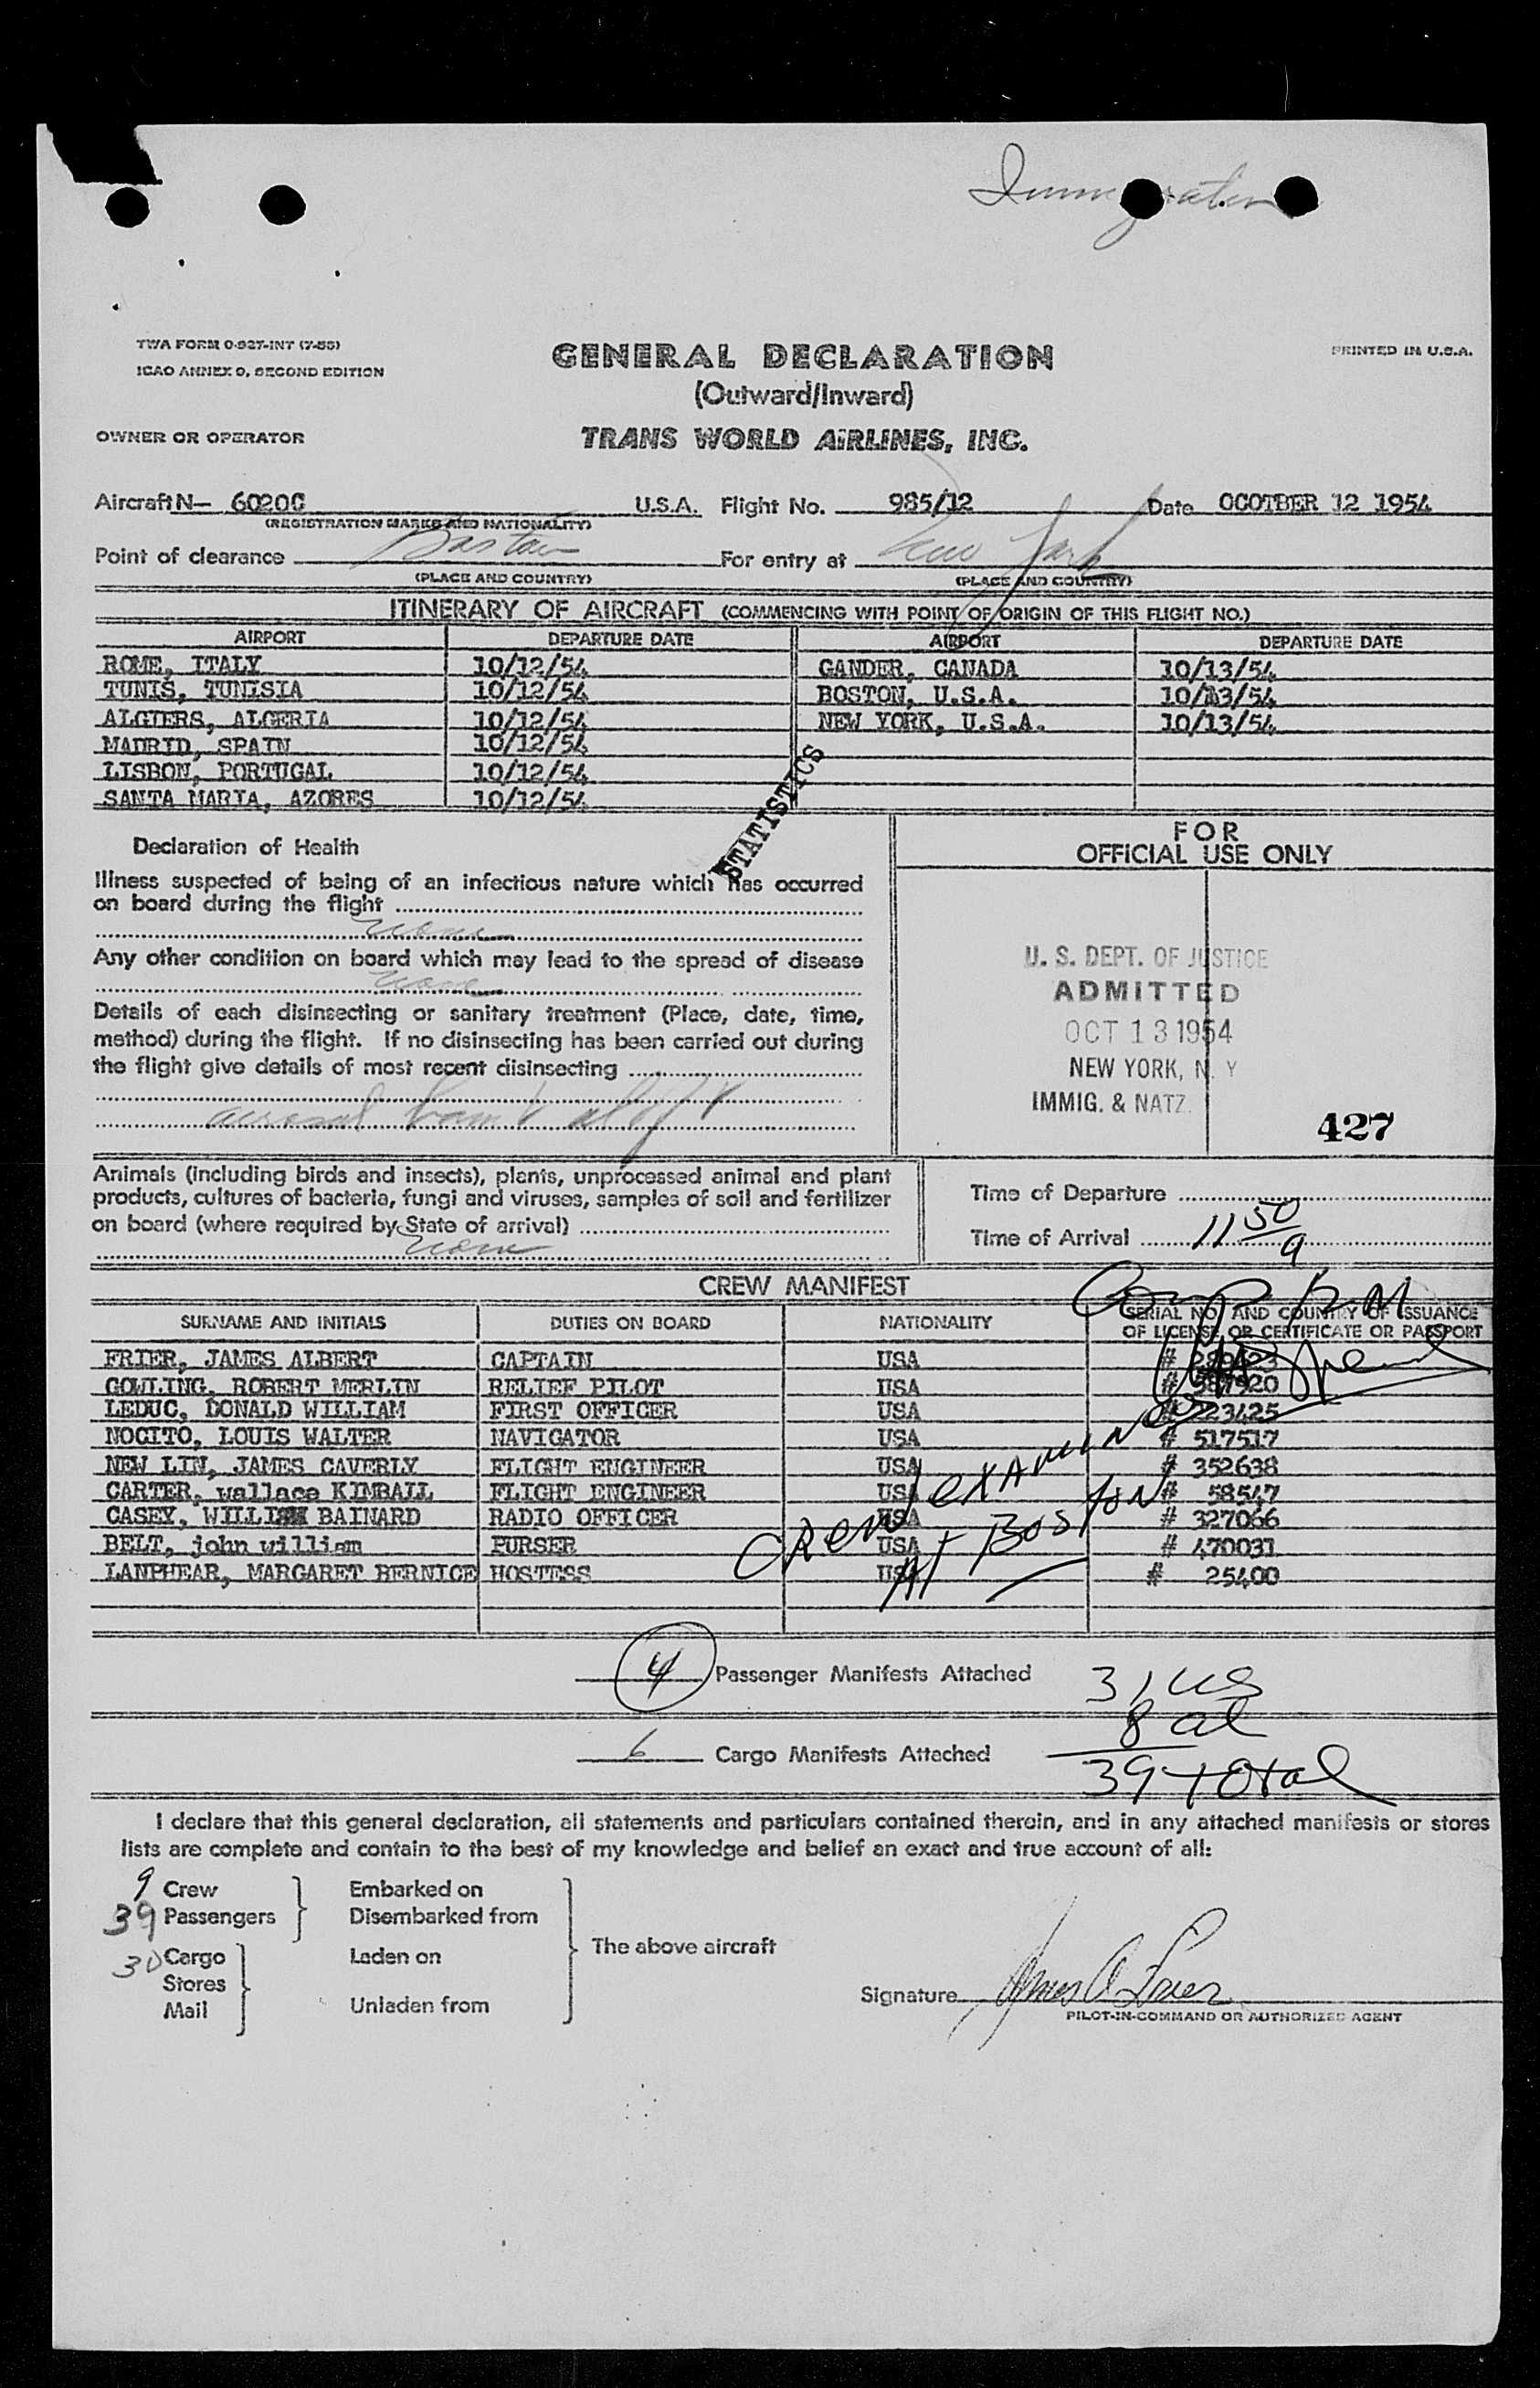 Immigration
TWA FORM 0-927-INT (7-53)
ICAO ANNEX 9, SECOND EDITION
GENERAL DECLARATION
PRINTED IN U.S.A.
(Outward/Inward)
OWNER OR OPERATOR
TRANS WORLD AIRLINES, INC.
Aircraft N— 6020C U.S.A. Flight No. 985/12 Date OCOTBER 12 1954
(REGISTRATION MARKS AND NATIONALITY)
Point of clearance Boston For entry at New York
(PLACE AND COUNTRY) (PLACE AND COUNTRY)
ITINERARY OF AIRCRAFT (COMMENCING WITH POINT OF ORIGIN OF THIS FLIGHT NO.)
AIRPORT DEPARTURE DATE AIRPORT DEPARTURE DATE
ROME, ITALY 10/12/54 GANDER, CANADA 10/13/54
TUNIS, TUNISIA 10/12/54 BOSTON, U.S.A. 10/13/54
ALGIERS, ALGERIA 10/12/54 NEW YORK, U.S.A. 10/13/54
MADRID, SPAIN 10/12/54
LISBON, PORTUGAL 10/12/54
SANTA MARIA, AZORES 10/12/54
STATISTICS
Declaration of Health
Illness suspected of being of an infectious nature which has occurred
on board during the flight
none
Any other condition on board which may lead to the spread of disease
none
Details of each disinsecting or sanitary treatment (Place, date, time,
method) during the flight. If no disinsecting has been carried out during
the flight give details of most recent disinsecting
aerosol bomb aloft
FOR
OFFICIAL USE ONLY
U. S. DEPT. OF JUSTICE
ADMITTED
OCT 13 1954
NEW YORK, N. Y
IMMIG. & NATZ.
427
Animals (including birds and insects), plants, unprocessed animal and plant
products, cultures of bacteria, fungi and viruses, samples of soil and fertilizer
on board (where required by State of arrival)
none
Time of Departure
Time of Arrival 11 50 a
CREW MANIFEST
SURNAME AND INITIALS DUTIES ON BOARD NATIONALITY SERIAL NO. AND COUNTRY OF ISSUANCE
OF LICENSE OR CERTIFICATE OR PASSPORT
FRIER, JAMES ALBERT CAPTAIN USA #
GOWLING, ROBERT MERLIN RELIEF PILOT USA # 587920
LEDUC, DONALD WILLIAM FIRST OFFICER USA # 223425
NOCITO, LOUIS WALTER NAVIGATOR USA # 517517
NEW LIN, JAMES CAVERLY FLIGHT ENGINEER USA # 352638
CARTER, wallace KIMBALL FLIGHT ENGINEER USA # 58547
CASEY, WILLI BAINARD RADIO OFFICER USA # 327066
BELT, john william PURSER USA # 470031
LANPHEAR, MARGARET BERNICE HOSTESS USA # 25400
CREW examined
At Boston
4 Passenger Manifests Attached
31 us
8 al
39 total
6 Cargo Manifests Attached
I declare that this general declaration, all statements and particulars contained therein, and in any attached manifests or stores
lists are complete and contain to the best of my knowledge and belief an exact and true account of all:
9 Crew Embarked on
39 Passengers Disembarked from
The above aircraft
30 Cargo Laden on
Stores
Mail Unladen from
Signature James A Frier
PILOT-IN-COMMAND OR AUTHORIZED AGENT